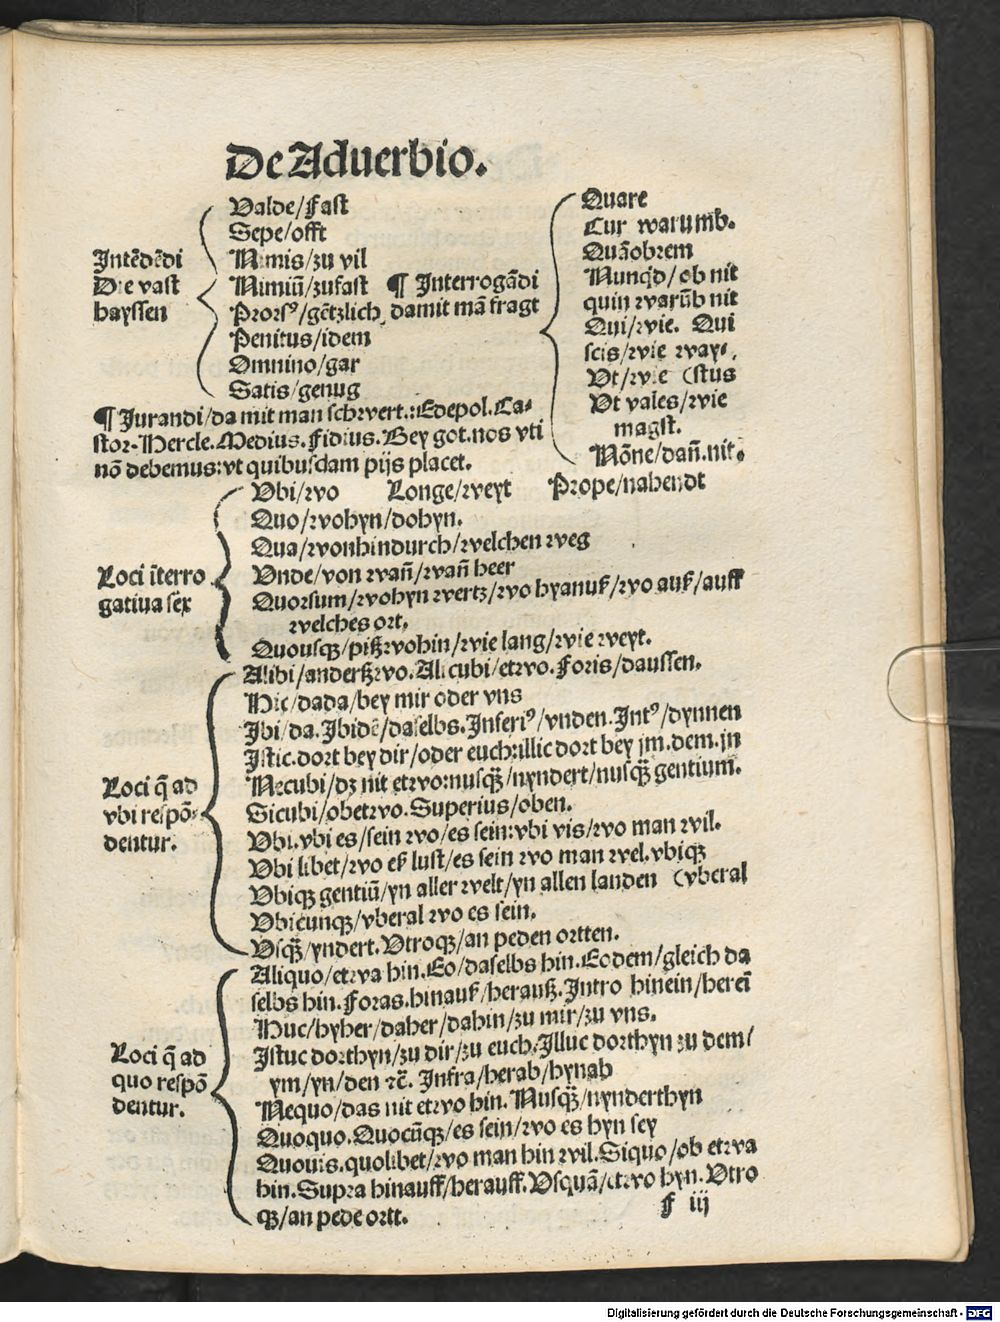 De Aduerbio.
Intēdēdi
Die vast
hayssen
Valde/fast
Sepe/offt
Nimis/zu vil
Nimiū/zufast
Prorsꝰ/gētzlich
Penitus/idem
Omnino/gar
Satis/genug
¶ Interrogādi
damit mā fragt
Quare
Cur warumb.
Quāobrem
Nunqd/ob nit
quin warūb nit
Qui/wie. Qui
scis/wie
Vt/wie (stus
Vt vales/wie
magst.
Nōne/dañ.nit.
¶ Jurandi/da mit man schwert.:Edepol.Ca⸗
stor.Hercle.Medius.fidius.Bey got.nos vti
nō debemus:vt quibusdam pijs placet.
Loci īterro
gatiua sex
Vbi/wo Longe/weyt Prope/nahendt
Quo/wohyn/dohyn.
Qua/wonhindurch/welchen weg
Vnde/von wañ/wañ heer
Quorsum/wohyn wertz/wo hyanuß/wo auß/auff
welches ort.
Quousqꝫ/pißwohin/wie lang/wie weyt.
Loci q̄ ad
vbi respō⸗
dentur.
Alibi/anderßwo.Alicubi/etwo.Foris/daussen.
Hic/dada/bey mir oder vns
Jbi/da.Jbidē/daselbs.Inferiꝰ/vnden.Intꝰ/dynnen
Jstic.dort bey dir/oder euch:illic dort bey jm.dem.jn
Necubi/dz nit etwo:nusqꝫ̄/nyndert/nusqꝫ̄ gentium.
Sicubi/obetwo.Superius/oben.
Vbi.vbi es/sein wo/es sein:vbi vis/wo man wil.
Vbi libet/wo eß lust/es sein wo man wel.vbiqꝫ
Vbiqꝫ gentiū/yn aller welt/yn allen landen (vberal
Vbicunqꝫ/vberal wo es sein.
Vsqꝫ̄/yndert.Vtroqꝫ/an peden ortten.
Loci q̄ ad
quo respō
dentur.
Aliquo/etwa hin.Eo/daselbs hin.Eodem/gleich da
selbs hin.Foras.hinauß/herauß.Intro hinein/hereī
Huc/hyher/daher/dahin/zu mir/zu vns.
Jstuc dorthyn/zu dir/zu euch.Jlluc dorthyn zu dem/
ym/yn/den ⁊c̄. Infra/herab/hynab
Nequo/das nit etwo hin.Nusqꝫ̄/nynderthyn
Quoquo.Quocūqꝫ/es sein/wo es hyn sey
Quouis.quolibet/wo man hin wil.Siquo/ob etwa
hin.Supra hinauff/herauff.Vsquā/etwo hyn.Vtro
qꝫ/an pede ortt.
F iij
Digitalisierung gefördert durch die Deutsche Forschungsgemeinschaft - DFG